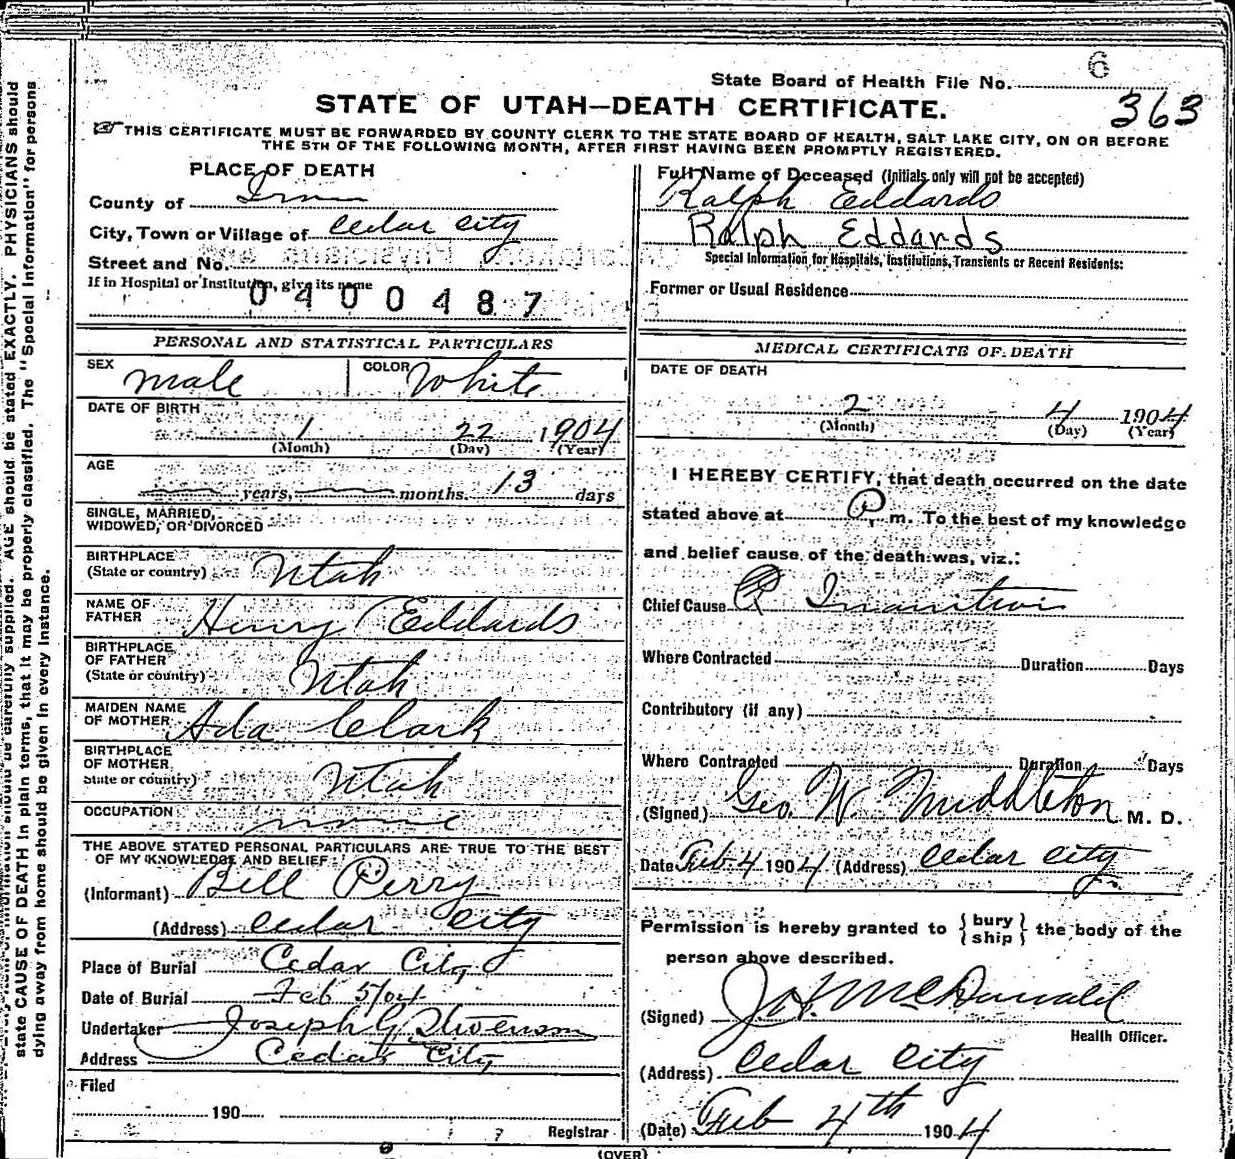 State Board of Health File No. 6
363
STATE OF UTAH—DEATH CERTIFICATE.
THIS CERTIFICATE MUST BE FORWARDED BY COUNTY CLERK TO THE STATE BOARD OF HEALTH, SALT LAKE CITY, ON OR BEFORE
THE 5TH OF THE FOLLOWING MONTH, AFTER FIRST HAVING BEEN PROMPTLY REGISTERED.
PLACE OF DEATH
County of Iron
City, Town or Village of Cedar City
Street and No.
If in Hospital or Institution, give its name
0400487
Full Name of Deceased (Initials only will not be accepted)
Ralph Eddards
Ralph Eddards
Special Information for Hospitals, Institutions, Transients or Recent Residents:
Former or Usual Residence
PERSONAL AND STATISTICAL PARTICULARS
SEX male COLOR White
DATE OF BIRTH
1 22 1904
(Month) (Day) (Year)
AGE
years, months. 13 days
SINGLE, MARRIED,
WIDOWED, OR DIVORCED
BIRTHPLACE
(State or country) Utah
NAME OF
FATHER Henry Eddards
BIRTHPLACE
OF FATHER
(State or country) Utah
MAIDEN NAME
OF MOTHER Ada Clark
BIRTHPLACE
OF MOTHER
State or country) Utah
OCCUPATION none
THE ABOVE STATED PERSONAL PARTICULARS ARE TRUE TO THE BEST
OF MY KNOWLEDGE AND BELIEF
(Informant) Bill Perry
(Address) Cedar City
Place of Burial Cedar City
Date of Burial Feb 5/04
Undertaker Joseph G. Stevenson
Address Cedar City
Filed
190
Registrar
MEDICAL CERTIFICATE OF DEATH
DATE OF DEATH
2 4 1904
(Month) (Day) (Year)
I HEREBY CERTIFY, that death occurred on the date
stated above at P. m. To the best of my knowledge
and belief cause of the death was, viz.:
Chief Cause Inanition
Where Contracted Duration Days
Contributory (if any)
Where Contracted Duration Days
(Signed) Geo. W. Middleton M. D.
Date Feb. 4 1904 (Address) Cedar City
Permission is hereby granted to {bury
ship} the body of the
person above described.
(Signed) McDonald
Health Officer.
(Address) Cedar City
(Date) Feb 4th 1904
(OVER)
state CAUSE OF DEATH in plain terms, that it may be properly classified. The "Special Information" for persons
dying away from home should be given in every instance.
supplied. AGE should be stated EXACTLY. PHYSICIANS should